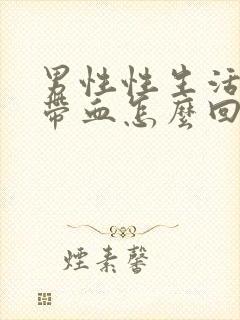 男性性生活
帶血怎麼回
煙素馨